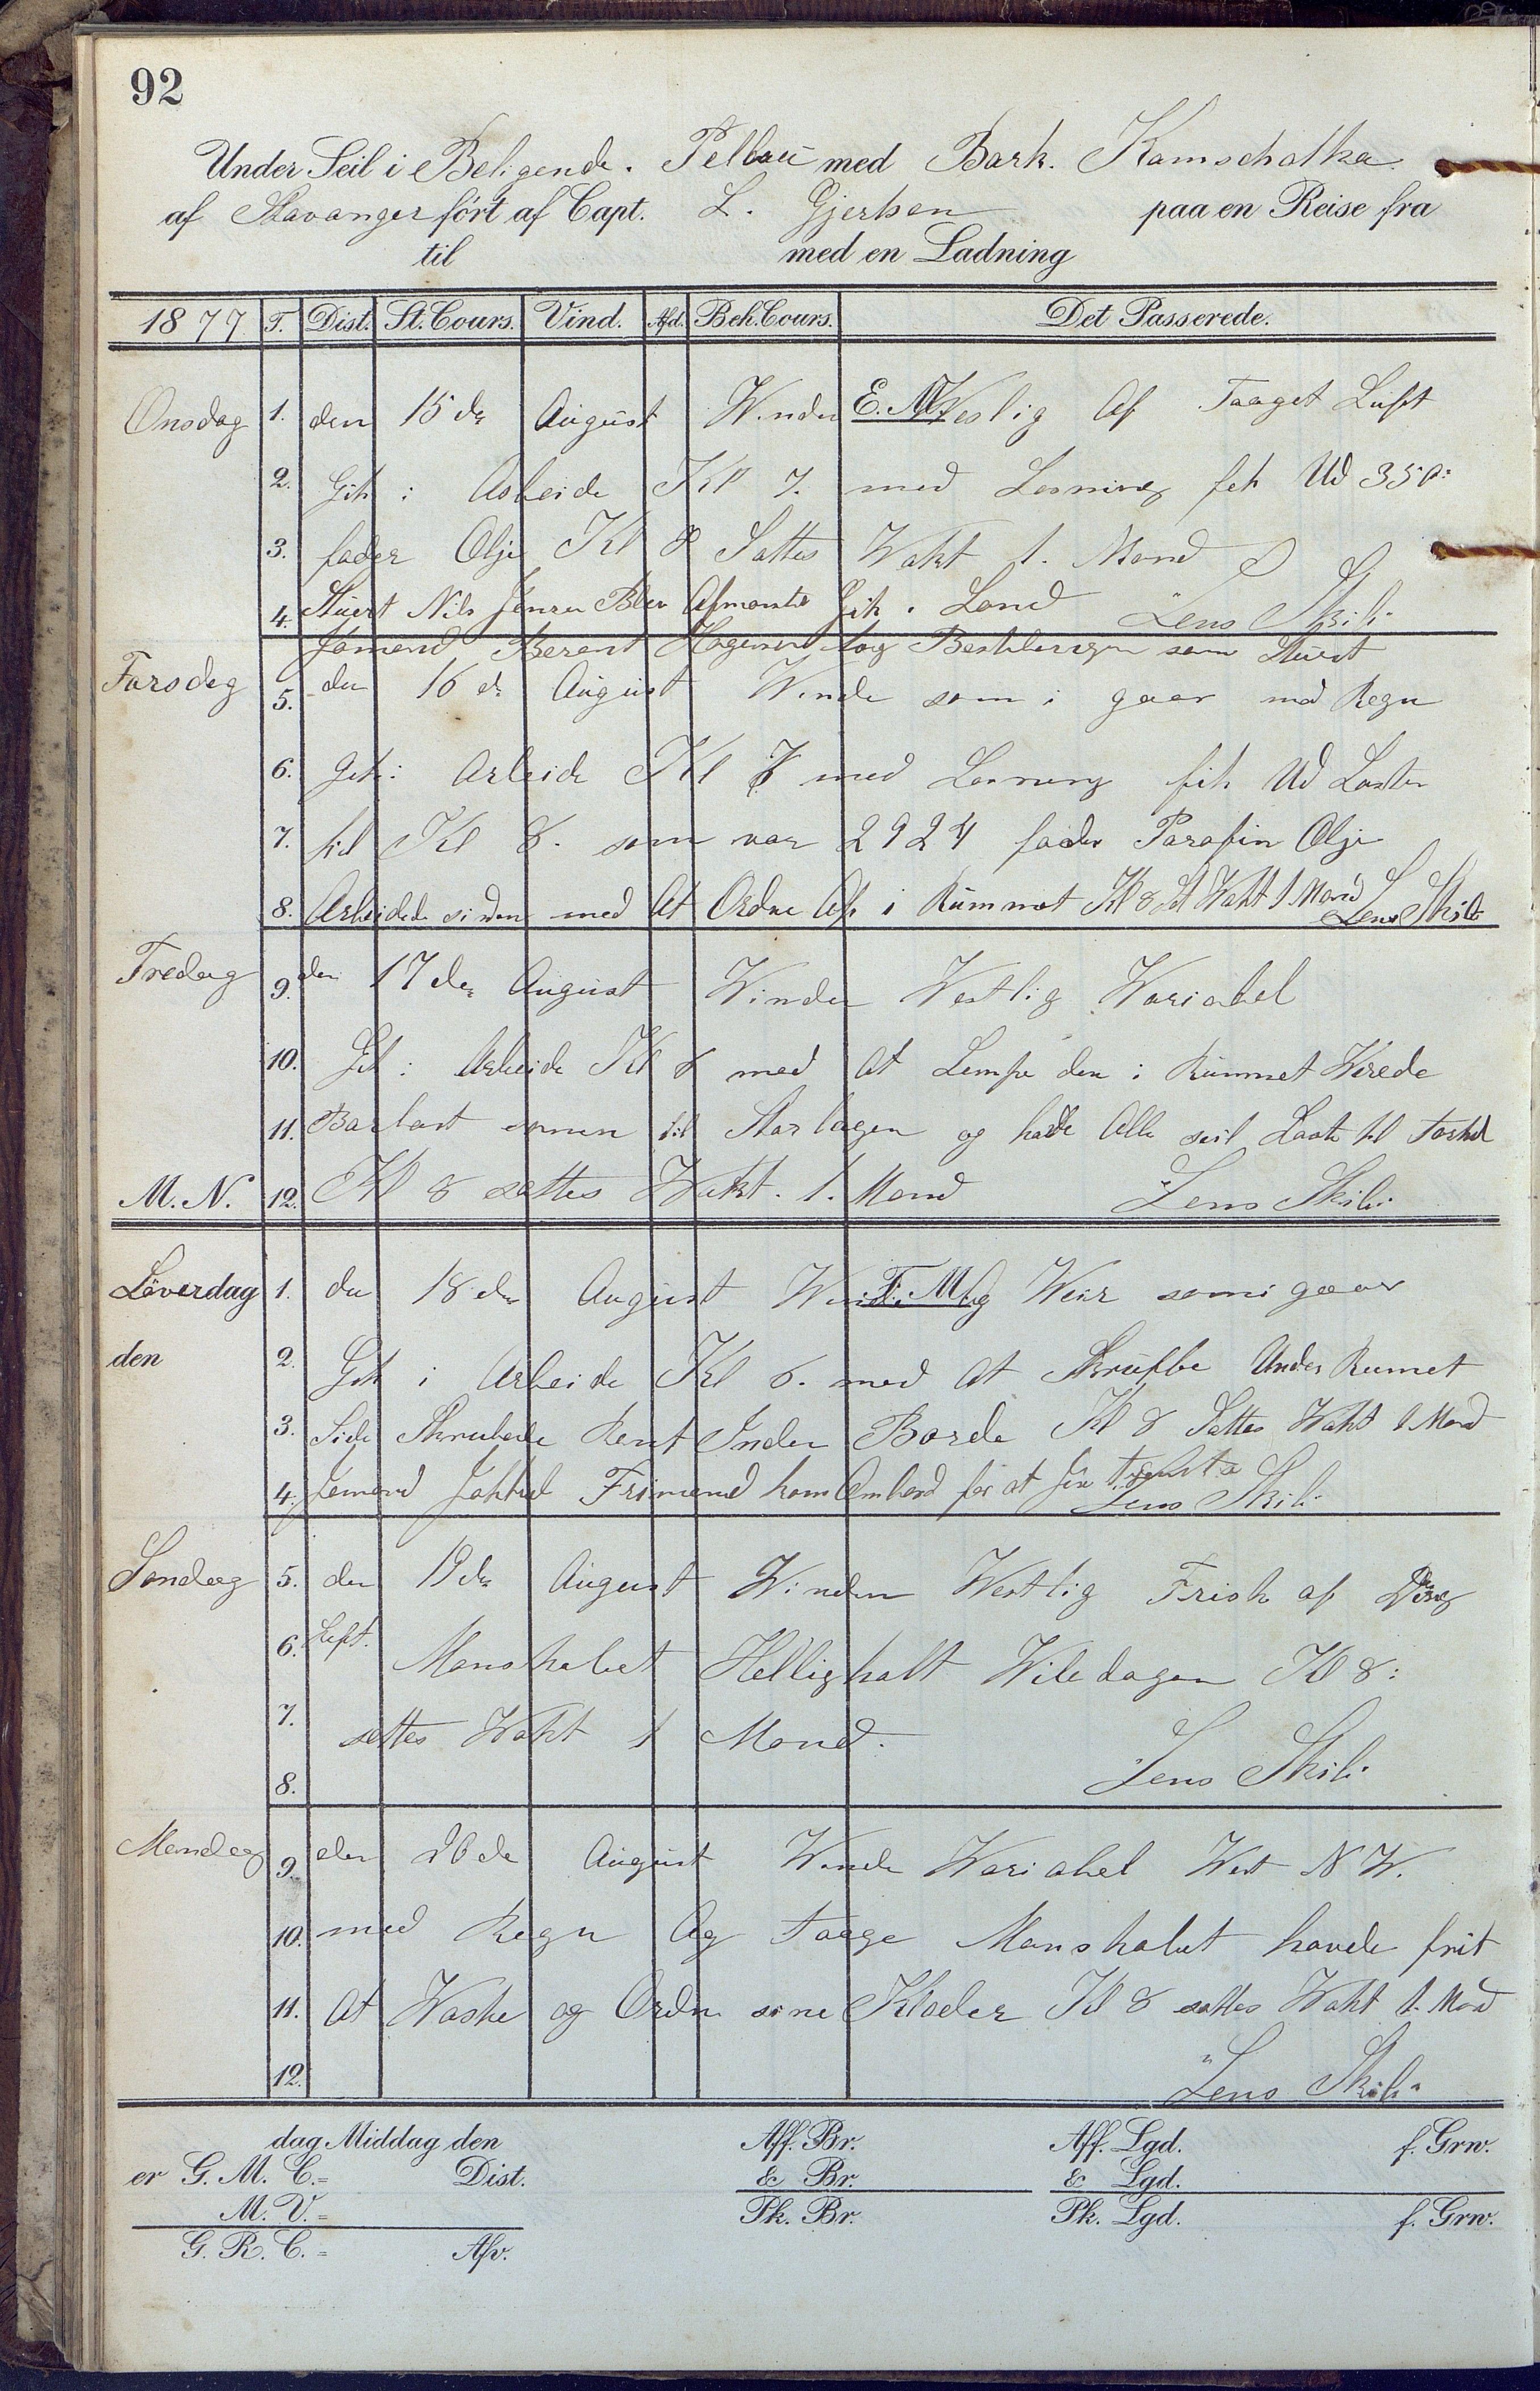 92
Under Seil i Beligende. Pellau med Bark. Kamschatka
af Stavanger fört af Capt. L. Gjertsen paa en Reise fra
til med en Ladning
1877 T. Dist. St. Cours. Vind. Afd. Beh. Cours. Det Passerede.
Onsdag 1. den 15 de August Winden E. M. Westlig Af Taaget Luft
2. Gik i Arbeide Kl 7. med Losning fek Ud 350:
3. fader Olje Kl 8 Sattes Wakt 1. Mand
4. Stuert Nils Jensen Blev Afmønstr Gik i Land Jens Skili
Jomend Berent Hagensen tog Bestilengen som Stuert
Torsdag 5. den 16 de August Winde som i gaar med Regn
6. Gik i Arbeide Kl 6 med Losning fik Ud Lasten
7. til Kl 8. som var 2924 fader Parafin Olje
8. Arbeidede siden med At Ordne Op i Rummet Kl 8 st Wakt 1 Mand Jens Skili
Fredag 9. den 17 de August Winden Westlig Wariabel
10. Gik i Arbeide Kl 6 med At Lempe den i Rummet Werede
11. Barlast til Storlugen og hadde Alle seil Laast til Torkel
M. N. 12. Kl 8 settes Wakt. 1. Mand Jens Skili
Löverdag 1. den 18 de August Wind F. M. og Weir som i gaar
den 2. Gik i Arbeide Kl 6. med At Skrubbe Under Rumet
3. Side Skrubede Rent Inden Borde Kl 8 Sattes Wakt 1 Mand
4. Jomend Jakkel Frimend kom Ombord for at Jens Skili
Sondag 5. den 19 de August Winden Westlig Frisk af Dog
6. Luft. Manskabet Helligholt Wiledagen Kl 8:
7. settes Wakt 1 Mand.
8. Jens Skili
Mandag 9. den 20 de August Winde Wariabel West N W.
10. med Regn Og Taage Manskabet havde frit
11. At Waske og Ordne sine Klæder Kl 8 sattes Wakt 1. Mand
12. Jens Skili
dag Middag den Aff. Br. Aff. Lgd. f. Grw.
er G. M. C.= Dist. & Br. & Lgd.
M. V.= Pk. Br. Pk. Lgd. f. Grw.
G. R. C.= Afv.